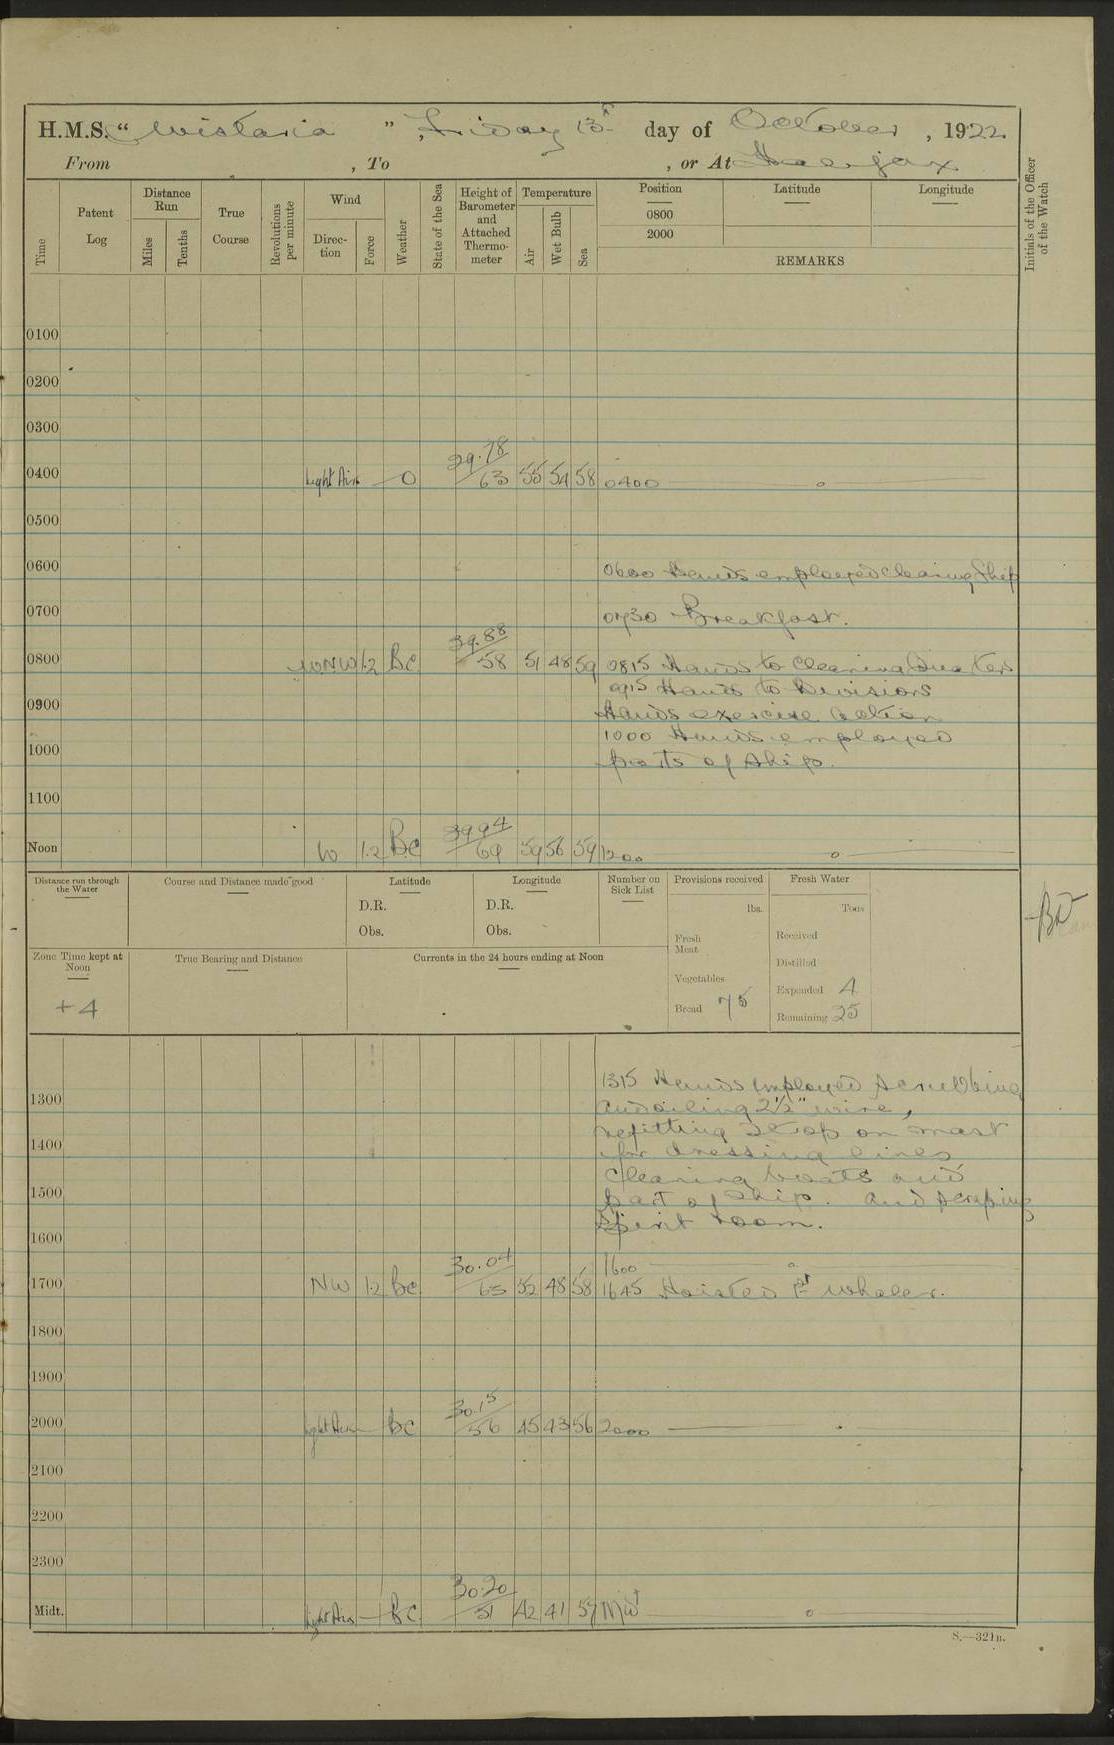 H.M.S. "Wistaria", Friday 13th day of October, 1922
From , To , or At Halifax
Time
Patent Log
Distance Run
Miles
Tenths
True Course
Revolutions per minute
Wind
Direction
Force
Weather
State of the Sea
Height of Barometer and Attached Thermometer
Temperature
Air
Wet Bulb
Sea
Position
0800
2000
Latitude
Longitude
REMARKS
Initials of the Officer of the Watch
0100
0200
0300
0400 Light Airs — O 29.78/63 55 54 58 0400
0500
0600 0600 Hands employed cleaning Ship
0700 0730 Breakfast.
0800 WNW 1.2 BC 39.88/58 51 48 59 0815 Hands to Cleaning Quarters
0915 Hands to Divisions
0900 Hands exercise action
1000 Hands employed
1000 parts of Ship.
1100
Noon W 1.2 BC 3994/69 59 56 59 1200
Distance run through the Water
Course and Distance made good
Latitude
D.R.
Obs.
Longitude
D.R.
Obs.
Number on Sick List
Provisions received
lbs.
Fresh Meat
Vegetables
Bread 75
Fresh Water
Tons
Received
Distilled
Expended 4
Remaining 25
Zone Time kept at Noon
+4
True Bearing and Distance
Currents in the 24 hours ending at Noon
1315 Hands employed scrubbing
1300 and oiling 2½" wire,
refitting stop on mast
1400 for dressing lines
cleaning boats and
1500 part of ship. and scraping
Spirit room.
1600
1600
1700 NW 1.2 BC 30.04/63 52 48 58 1645 Hoisted 1st whaler.
1800
1900
2000 Light Airs — BC 30.15/56 45 43 56 2000
2100
2200
2300
Midt. Light Airs — BC 30.20/51 42 41 57 Mdt
S.—321B.